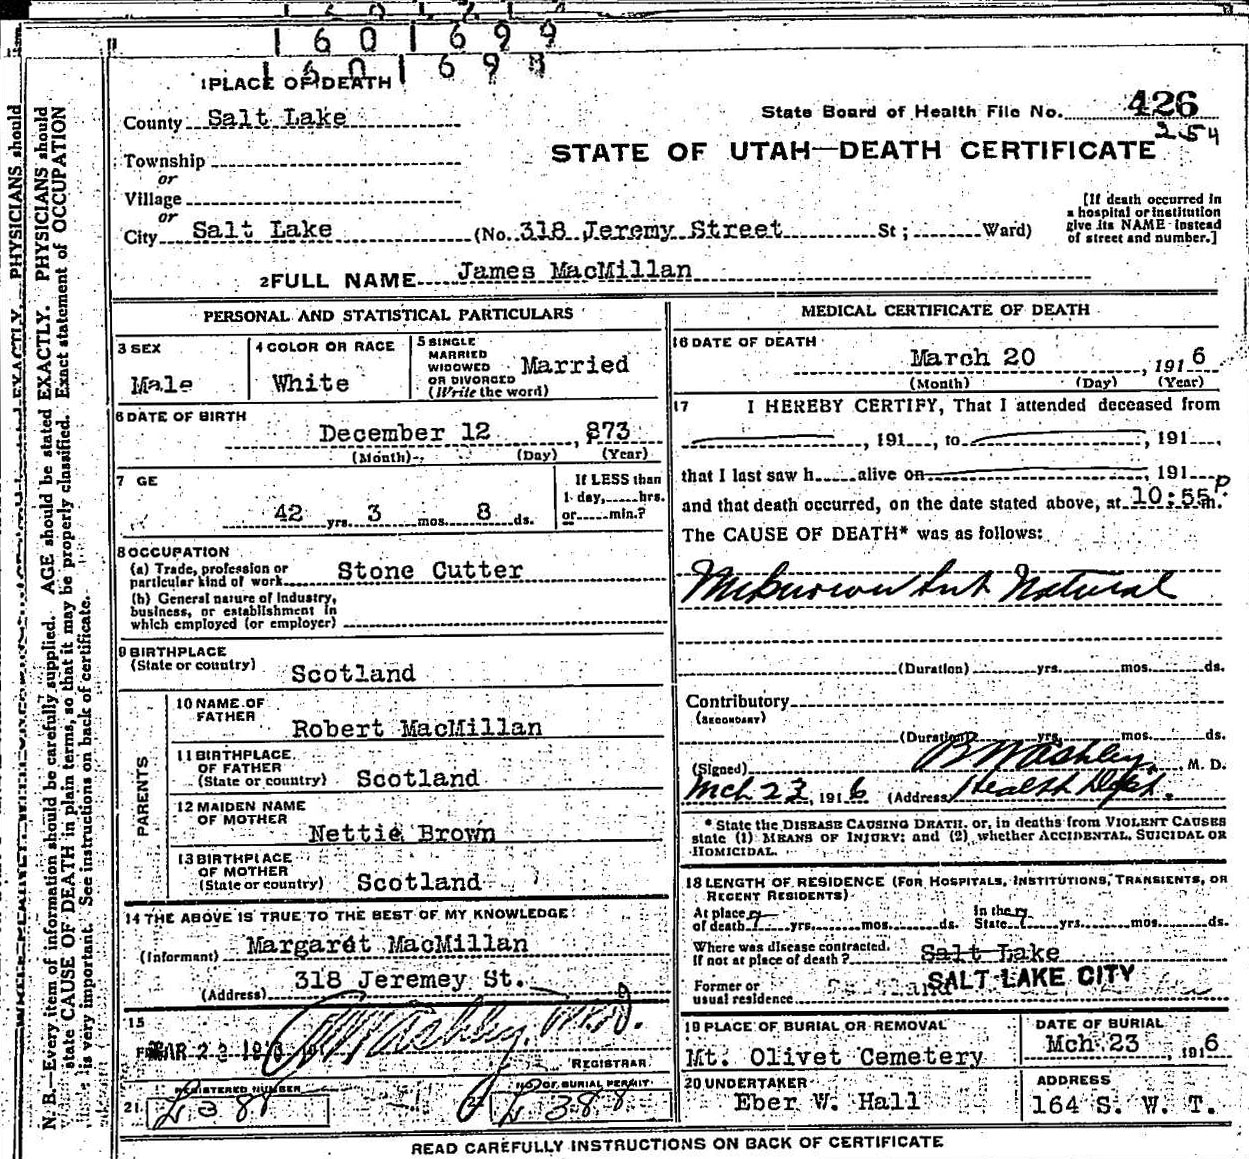 1601699
160169
1 PLACE OF DEATH
County Salt Lake
State Board of Health File No. 426
254
STATE OF UTAH—DEATH CERTIFICATE
Township
or
Village
or
City Salt Lake (No. 318 Jeremy Street St; Ward)
[If death occurred in
a hospital or institution
give its NAME instead
of street and number.]
2 FULL NAME James MacMillan
PERSONAL AND STATISTICAL PARTICULARS
3 SEX
Male
4 COLOR OR RACE
White
5 SINGLE
MARRIED
WIDOWED
OR DIVORCED
(Write the word)
Married
6 DATE OF BIRTH
December 12, 873
(Month) (Day) (Year)
7 GE
42 yrs. 3 mos. 8 ds.
If LESS than
1 day, hrs.
or min.?
8 OCCUPATION
(a) Trade, profession or
particular kind of work Stone Cutter
(b) General nature of Industry,
business, or establishment in
which employed (or employer)
9 BIRTHPLACE
(State or country) Scotland
PARENTS
10 NAME OF
FATHER
Robert MacMillan
11 BIRTHPLACE
OF FATHER
(State or country) Scotland
12 MAIDEN NAME
OF MOTHER
Nettie Brown
13 BIRTHPLACE
OF MOTHER
(State or country) Scotland
14 THE ABOVE IS TRUE TO THE BEST OF MY KNOWLEDGE
(Informant) Margaret MacMillan
(Address) 318 Jeremey St.
15
MAR 23 191
REGISTRAR
REGISTERED NUMBER
21
NO OF BURIAL PERMIT
MEDICAL CERTIFICATE OF DEATH
16 DATE OF DEATH
March 20, 1916
(Month) (Day) (Year)
17 I HEREBY CERTIFY, That I attended deceased from
, 191 , to , 191 ,
that I last saw h alive on , 191
and that death occurred, on the date stated above, at 10:55 p m.
The CAUSE OF DEATH* was as follows:
Natural
(Duration) yrs. mos. ds.
Contributory
(SECONDARY)
(Duration) yrs. mos. ds.
(Signed) M. D.
Mch 23, 1916 (Address) Health Dept.
* State the DISEASE CAUSING DEATH, or, in deaths from VIOLENT CAUSES
state (1) MEANS OF INJURY; and (2) whether ACCIDENTAL, SUICIDAL OR
HOMICIDAL.
18 LENGTH OF RESIDENCE (FOR HOSPITALS, INSTITUTIONS, TRANSIENTS, OR
RECENT RESIDENTS)
At place
of death yrs. mos. ds.
In the
State yrs. mos. ds.
Where was disease contracted,
if not at place of death? Salt Lake
Former or
usual residence SALT LAKE CITY
19 PLACE OF BURIAL OR REMOVAL
Mt. Olivet Cemetery
DATE OF BURIAL
Mch 23, 1916
20 UNDERTAKER
Eber W. Hall
ADDRESS
164 S. W. T.
READ CAREFULLY INSTRUCTIONS ON BACK OF CERTIFICATE
N. B.—Every item of information should be carefully supplied. AGE should be stated EXACTLY. PHYSICIANS should
state CAUSE OF DEATH in plain terms, so that it may be properly classified. Exact statement of OCCUPATION
is very important. See instructions on back of certificate.